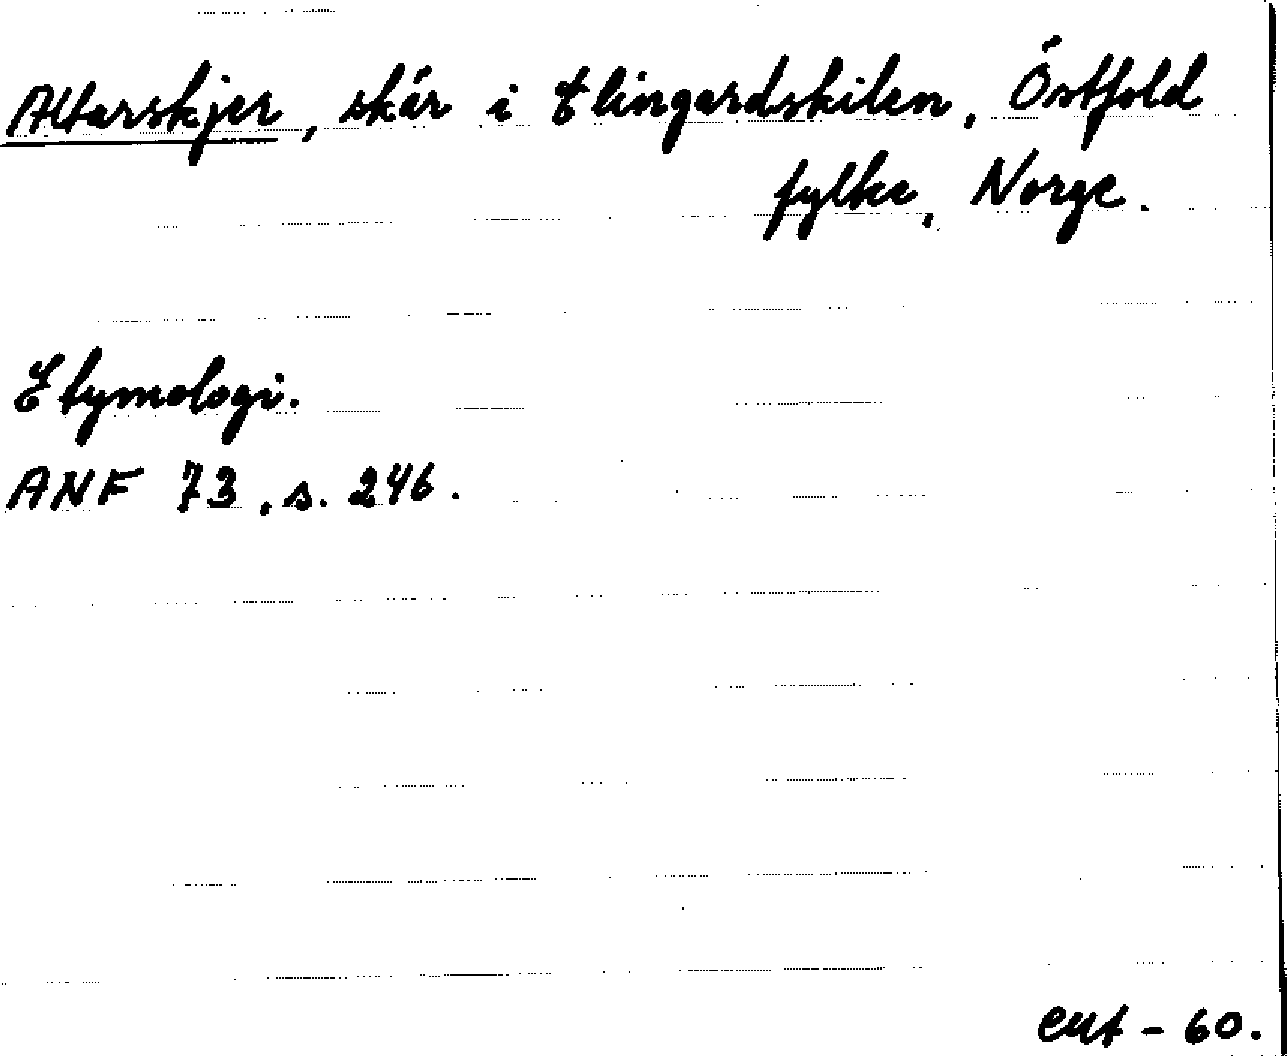 Altarskjer, skär i Elingardskilen, Östfold
fylke, Norge.
Etymologi.
ANF 73, s. 246.
eut - 60.